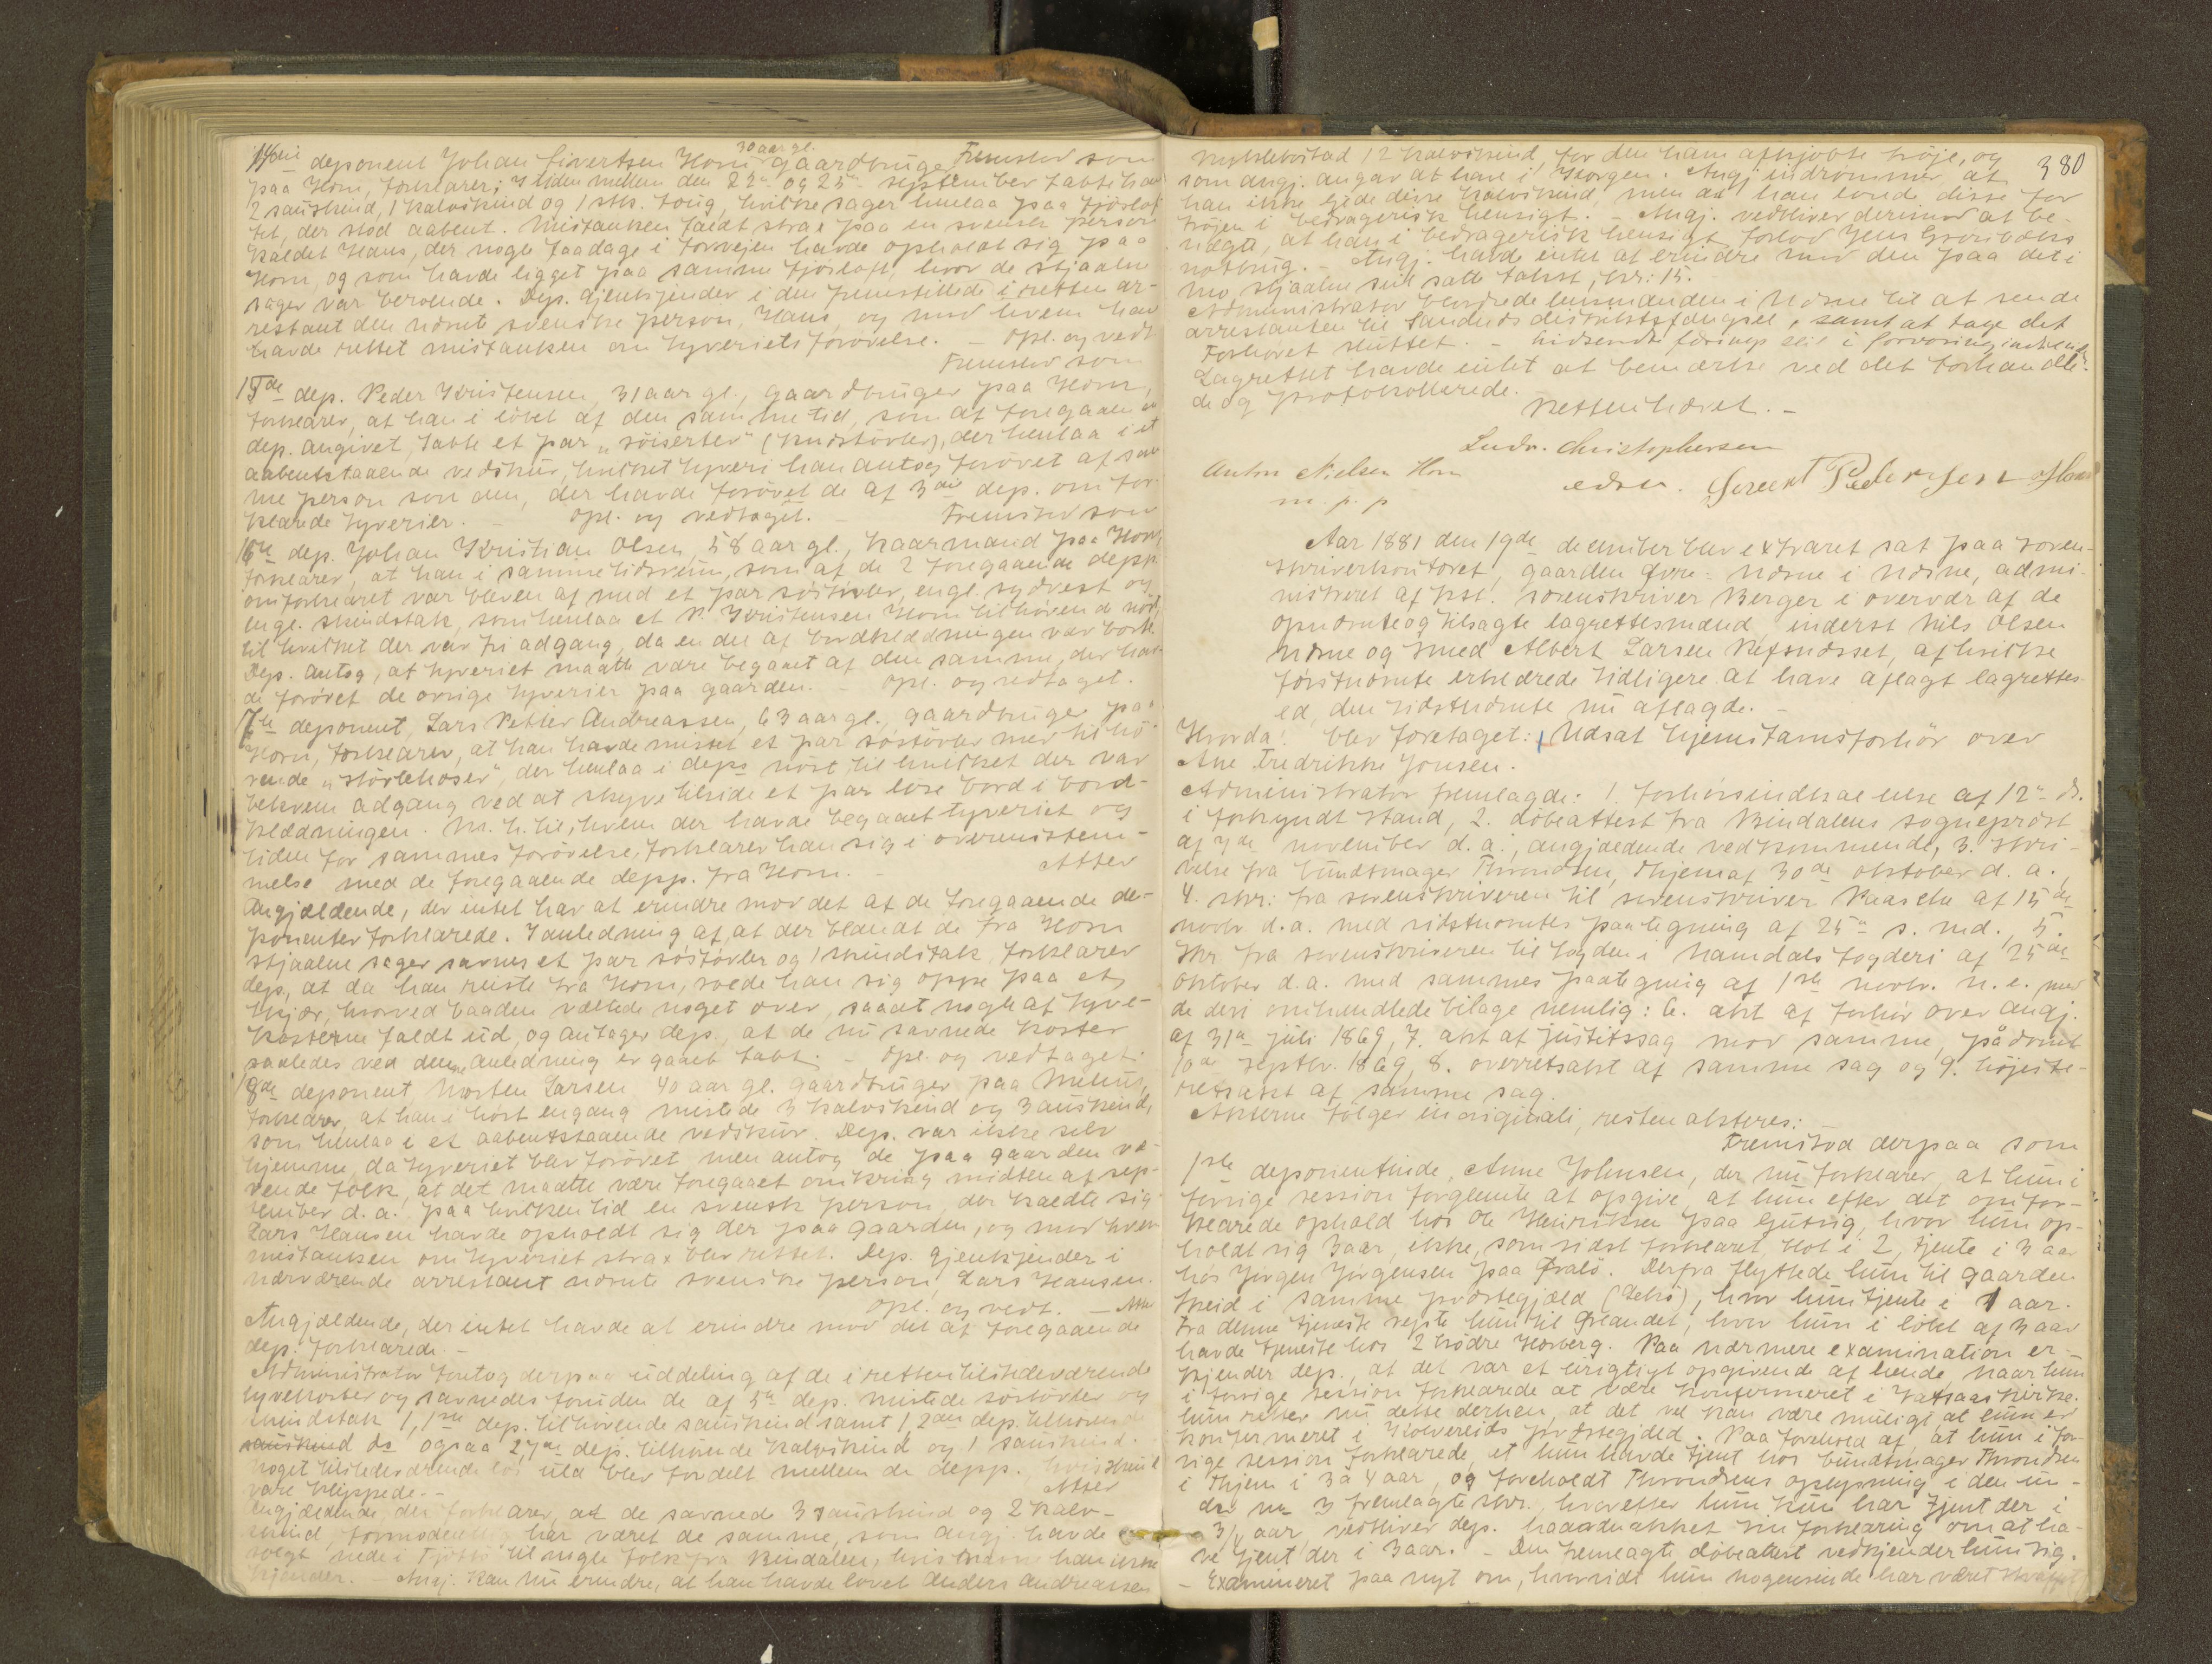 14de deponent Johan Sivertsen Horn 30 aar gl. gaardbruger Fremstod som
paa Horn, forklarer; I tiden mellem den 22de og 25de september tabte han
2 sauskind, 1 kalvskind og 1 stk. toug, hvilke sager henlaa paa fjøslof-
tet, der stod aabent. Mistanken faldt strax paa en svensk person
kaldet Hans, der nogle faa dage i forvejen havde opholdt sig paa
Horn, og som havde ligget paa samme fjösloft, hvor de stjaalne
sager var beroende. Dep. gjenkjender i den fremstillede i retten ar-
restant den nævnte svenske person, Hans, og mod hvem han
havde rettet mistanken om tyveriets forøvelse. – Opl. og vedt.
Fremstod som
15de dep. Peder Kristensen, 31 aar gl., gaardbruger paa Horn,
forklarer, at han i löbet af den samme tid, som af foregaaende
dep. angivet, tabte et par "söiserter" (knæstövler), der henlaa i et
aabentstaaende vedskur, hvilket tyveri han antog forövet af sam
me person som den, der havde forövet de af 3die dep. omfor-
klarede tyverier. – Opl. og vedtaget. – Fremstod som
16de dep. Johan Kristian Olsen, 58 aar gl., kaarmand paa Horn,
forklarer, at han i samme tidsrum, som af de 2 foregaaende depp.
omforklaret var bleven af med et par söstövler, en gl. sydvest og
en gl. skindstak, som henlaa et P. Kristensen Horn tilhörende nöst,
til hvilket der var fri adgang, da en del af bordklædningen var borte.
Dep. antog, at tyveriet maatte være begaaet af den samme, der hav-
de forövet de övrige tyverier paa gaarden. – Opl. og vedtaget.
17de deponent, Lars Petter Andreassen, 63 aar gl., gaardbruger paa
Horn, forklarer, at han havde mistet et par söstövler med tilhö-
rende "störlehoser", der henlaa i deps nöst, til hvilket der var
bekvem adgang ved at skyve tilside et par löse bord i bord-
klædningen. M. h. til, hvem der havde begaaet tyveriet og
tiden for sammes forövelse, forklarer han sig i overensstem-
melse med de foregaaende depp. fra Horn. – Atter
Angjældende, der intet har at erindre mod det af de foregaaende de-
ponenter forklarede. I anledning af, at der blandt de fra Horn
stjaalne sager savnes et par söstövler og 1 skindstak, forklarer
dep., at da han reiste fra Horn, roede han sig oppe paa et
skjær, hvorved baaden væltede noget over, saaat nogle af tyve-
kosterne faldt ud, og antager dep., at de nu savnede koster
saaledes ved denne anledning er gaaet tabt. – Opl. og vedtaget.
18de deponent Morten Larsen 40 aar gl. gaardbruger paa
forklarer, at han i höst engang mistede 3 kalvskind og 3 auskind,
som henlaa i et aabentstaaende vedskur. Dep. var ikke selv
hjemme, da tyveriet blev forövet men antog de paa gaarden væ-
rende folk, at det maatte være foregaaet omkring midten af sep-
tember d. a. paa hvilken tid en svensk person, der kaldte sig
Lars Hansen havde opholdt sig der paa gaarden, og mod hvem
mistanken om tyveriet strax blev rettet. Dep. gjenkjender i
nærværende arrestant nævnte svenske person, Lars Hansen.
Opl. og vedt. – Atter
Angjældende, der intet havde at erindre mod det af foregaaende
dep. forklarede. –
Administrator foretog derpaa uddeling af de i retten tilstedeværende
tyvekoster og savnedes foruden de af 5te dep. mistede söstövler og
skindstak 1, 1ste dep. tilhörende sauskind samt 1, 2den dep. tilhörende
sauskind do ogsaa 2, dep. tilhörende kalvskind og 1 sauskind.
Noget tilstedeværende lös uld blev fordelt mellem de depp. hvis skind
vare klippede. – Atter
Angjældende, der forklarer, at de savnede 3 sauskind og 2 kalv-
skind, formodentlig har været de samme, som angj. havde
solgt nede i Tjöttö til nogle folk fra Bindalen, hvis navne han ikke
kjender. – Angj. kan nu erindre, at han havde lovet Anders Andreassen
380
12 kalvskind, for den ham afkjöbte tröje, og
som angj. angav at have i Horgen. Angj. indrömmer at
han ikke ejede disse kalvskind, men at han lovede disse for
tröjen i bedragerisk hensigt. – Angj. vedbliver derimod at be-
nægte, at han i bedragerisk hensigt forlod Jens
notbrug. – Angj. havde intet at erindre mod den paa det i
Mo stjaalne seil satte takst, kr: 15.
Administrator beordrede lensmanden i Nærne til at sende
arrestanten til Sandnæs distriktsfængsel, samt at tage det
Forhöret sluttet. – seil i forvaring
Lagrettet havde intet at bemærke ved det forhandle-
de og protokollerede.
Retten hævet. –
Ludv. Christophersen
Anton Nielsen Horn
m. p. p
edsv. Sivert Pedersen
Aar 1881 den 19de december blev extraret sat paa soren-
skriverkontoret, gaarden övre Nærne i Nærne, admi-
nistreret af kst. sorenskriver Berger i overvær af de
opnævnte og tilsagte lagrettesmænd, inderst Nils Olsen
Nærne og smed Albert Larsen Refsnæsset, af hvilke
förstnævnte erklærede tidligere at have aflagt lagrettes
ed, den sidstnævnte nu aflagde. –
Hvorda: blev foretaget: Udsat hjemstavnsforhör over
Ane Fredrikke Jonsen.
Administrator fremlagde: 1. forhörsindkaldelse af 12te ds.
i forkyndt stand, 2. döbeattest fra Bindalens sogneprest
af 7de november d. a., angjældende vedkommende, 3. skri-
velse fra bundtmager Throndsen, Thjem af 30de oktober d. a.,
4. skr: fra sorenskriveren til sorenskriver Raasch af 15de
novbr. d. a. med sidstnævntes paategning af 25de s. md., 5.
skr. fra sorenskriveren til fogden i Namdals fogderi af 25de
oktober d. a. med sammes paategning af 1ste novbr. n. e. med
de deri omhandlede bilage nemlig: 6. akt af forhör over angj.
af 31te juli 1869, 7. akt af justitssag mod samme, pådömt
10de septbr. 1869, 8. overretsakt af samme sag og 9. höjeste-
retsakt af samme sag.
Akterne fölger in originali, resten akteres: –
Fremstod derpaa som
1ste deponentinde, Anne Johnsen, der nu forklarer, at hun i
forrige session forglemte at opgive, at hun efter det omfor-
klarede ophold hos Ole Henriksen paa Gutvig, hvor hun op-
holdt sig 3 aar, ikke, som sidst forklaret, blot i 2, tjente i 3 aar
hos Jørgen Jørgensen paa Fralö. Derfra flyttede hun til gaarden
Skeid i samme præstegjæld (Lekö), hvor hun tjente i 1 aar.
Fra denne tjeneste rejste hun til Frelandet, hvor hun i löbet af 3 aar
havde tjeneste hos 2 brödre Horberg. Paa nærmere examination er-
kjender dep., at det var et urigtigt opgivende af hende, naar hun
i forrige session forklarede at være konfirmeret i Vatsaas kirke.
hun retter nu dette derhen, at det vel kan være muligt at hun er
konfirmeret i Kolvereids præstegjæld. Paa forehold af, at hun i for-
rige session forklarede, at hun havde tjent hos bundtmager Throndsen
i Thjem i 3 à 4 aar, og foreholdt Throndsens oplysning i den un-
der no 3 fremlagte skr., hvorefter hun kun har tjent der i
3/4 aar, vedbliver dep. haardnakket sin forklaring om at ha-
ve tjent der i 3 aar. – Den fremlagte döbeattest vedkjender hun sig.
– Examineret paa nyt om, hvorvidt hun nogensinde har været straffet